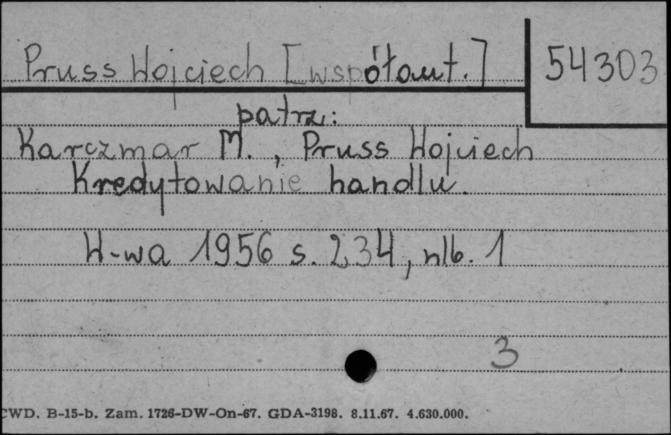 Pruss Wojciech [współaut.] 54303
patrz:
Karczmar M., Pruss Wojciech
Kredytowanie handlu.
W-wa 1956 s. 234, nlb. 1
3
CWD. B-15-b. Zam. 1726-DW-On-67. GDA-3198. 8.11.67. 4.630.000.